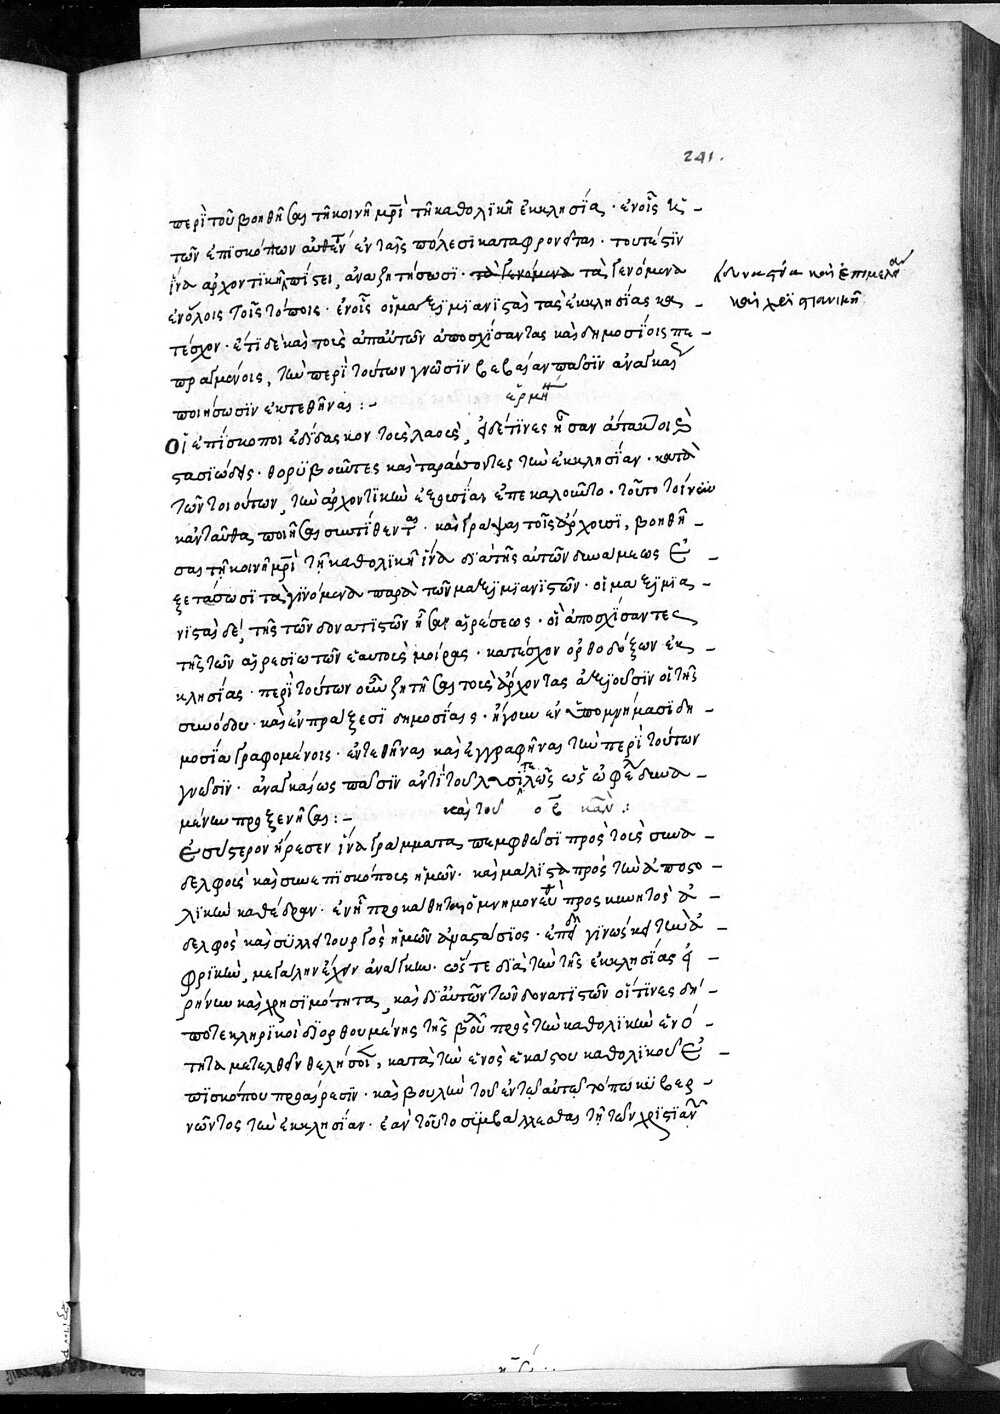 241.
περὶ τοῦ βοηθῆσαι τῇ κοινῇ μρὶ τῇ καθολικῇ ἐκκλησίᾳ · ἐν οἷς ἡ
τῶν ἐπισκόπων αὐθεντ ἐν ταῖς πόλεσι καταφρονεῖται · τουτέστιν
ἵνα ἀρχοντικῇ πίστει, ἀναζητήσωσι · τὰ γενόμενα τὰ γενόμενα
δυναστεία καὶ ἐπιμελεία
καὶ χριστιανικῇ
ἐν ὅλοις τοῖς τόποις · ἐν οἷς οἱ μαξιμιανισταὶ τὰς ἐκκλησίας κα
τέσχον · ἔτι δὲ καὶ τοὺς ἀπ' αὐτῶν ἀποσχίσαντας καὶ δημοσίοις πε
πραγμένοις, τὴν περὶ τούτων γνῶσιν βεβαίαν πᾶσιν ἀναγκαί
ποιήσωσιν ἐντεθῆναι :-
ἑρμη
Οἱ ἐπίσκοποι ἐδίδασκον τοὺς λαοὺς, εἰ δέ τινες ἦσαν ἄτακτοι
στασιώδεις · θορυβοῦντες καὶ ταράττοντες τὴν ἐκκλησίαν · κατὰ
τῶν τοιούτων, τὴν ἀρχοντικὴν ἐξουσίαν ἐπεκαλοῦντο · τοῦτο τοίνυν
κἀνταῦθα ποιῆσαι συντίθενται · καὶ γράψαι τοῖς ἄρχουσι, βοηθῆ
σαι τῇ κοινῇ μρὶ τῇ καθολικῇ ἵνα διὰ τῆς αὐτῶν δυνάμεως ἐ
ξετάσωσι τὰ γινόμενα παρὰ τῶν μαξιμιανιστῶν · οἱ μαξιμια
νισταὶ δὲ, τῆς τῶν δονατιστῶν ἦσαν αἱρέσεως · οἱ ἀποσχίσαντες
τῆς τῶν αἱρεσιωτῶν ἑαυτοὺς μοίρας · κατέσχον ὀρθοδόξων ἐκ
κλησίας · περὶ τούτων οὖν ζητῆσαι τοὺς ἄρχοντας ἀξιοῦσιν οἱ τῆς
συνόδου · καὶ ἐν πράξεσι δημοσίαις · ἤγουν ἐν ὑπομνήμασι δη
μοσίᾳ γραφομένοις · ἐντεθῆναι καὶ ἐγγραφῆναι τὴν περὶ τούτων
γνῶσιν · ἀναγκαίως πᾶσιν ἀντὶ τοῦ λυσιτελῶς ὡς ὠφέλ δυνα
μένην προξενῆσαι :-
καὶ τοῦ ο ε καν :
Εἰσύστερον ἤρεσεν ἵνα γράμματα πεμφθῶσι πρὸς τοὺς συνα
δελφοὺς καὶ συνεπισκόπους ἡμῶν · καὶ μάλιστα πρὸς τὴν ἀποστο
λικὴν καθέδραν · ἐν ᾗ προκάθηται ὁ μνημονευ προσκυνητὸς ἀ
δελφὸς καὶ συλλειτουργὸς ἡμῶν ἀναστάσιος · ἐπειδὴ γινώσκει τὴν ἀ
φρικὴν, μεγάλην ἔχειν ἀνάγκην · ὥστε διὰ τὴν τῆς ἐκκλησίας εἰ
ρήνην καὶ χρησιμότητα, καὶ δι' αὐτῶν τῶν δονατιστῶν οἵτινες δή
ποτε κληρικοὶ διορθουμένης τῆς βουλ πρὸς τὴν καθολικὴν ἑνό
τητα μετελθεῖν θελήσοι, κατὰ τὴν ἑνὸς ἑκάστου καθολικοῦ ἐ
πισκόπου προαίρεσιν · καὶ βουλὴν τοῦ ἐν τῷ αὐτῷ τόπῳ κυβερ
νῶντος τὴν ἐκκλησίαν · ἐὰν τοῦτο συμβάλλεσθαι τῇ τῶν χριστιαν